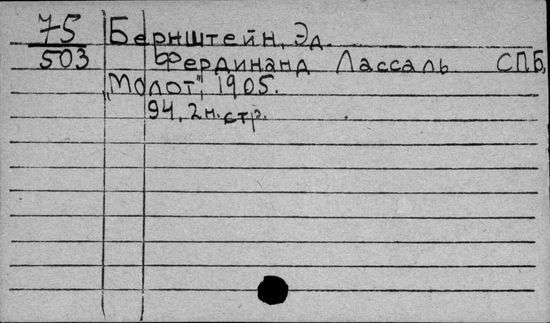 75 Бернштейн, Эд.
503 Фердинанд Лассаль СПБ,
„Молот”, 1905.
94, 2 н. стр.